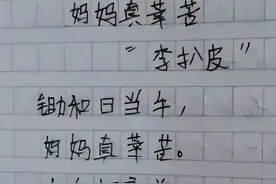 妈妈真莘苦
“李扒皮”
锄和日当午，
妈妈真莘苦。